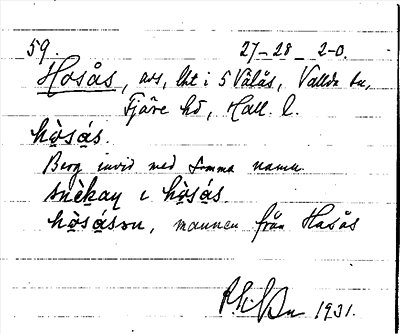 59. 27-28 2-0.
Hosås, avs, lht i 5 Välås, Vallda sn,
Fjäre hd, Hall. l.
hòsás.
Berg invid med samma namn
snèkay i hòsás.
hòsásn, mannen från Hasås
1931.